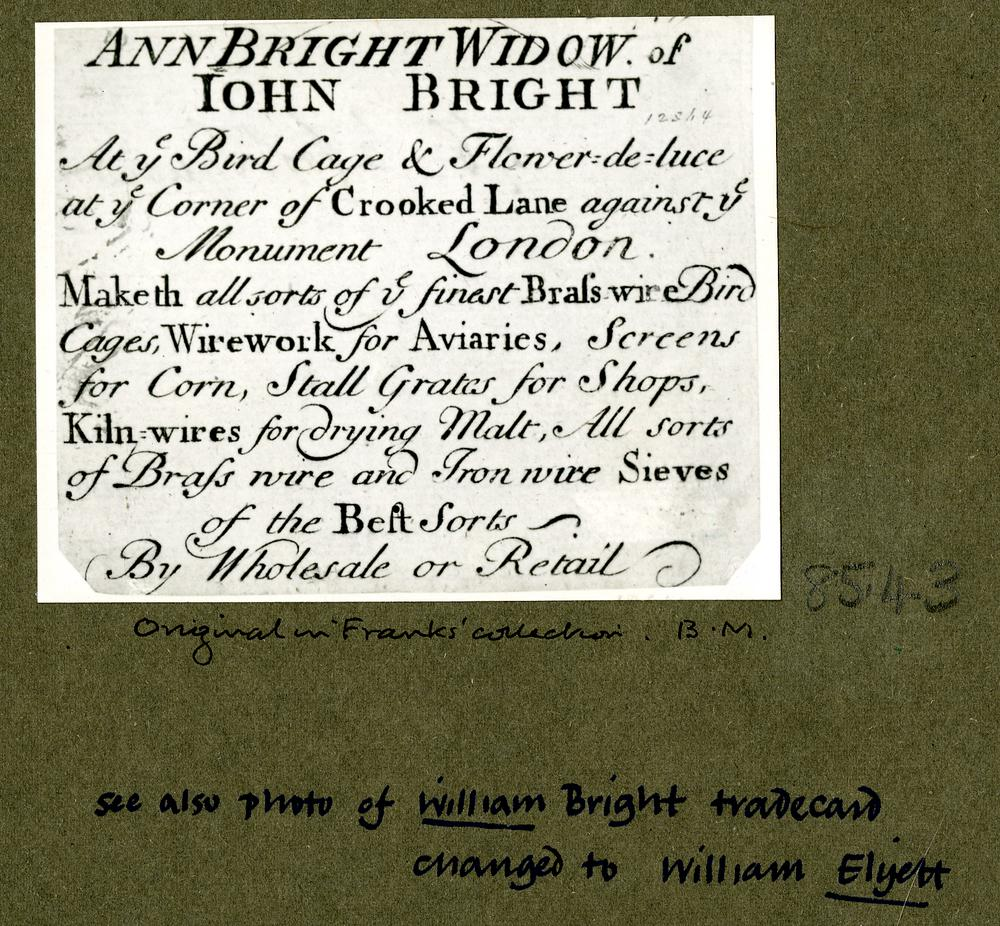 ANN BRIGHT WIDOW. of
IOHN BRIGHT
At yͤ Bird Cage & Flower=de=luce
at yͤ Corner of Crooked Lane against yͤ
Monument London.
Maketh all sorts of yͤ finest Braſs wire Bird
Cages, Wirework for Aviaries, Screens
for Corn, Stall Grates for Shops,
Kiln=wires for drying Malt, All sorts
of Braſs wire and Iron wire Sieves
of the Beſt Sorts
By Wholesale or Retail
85.4-3
Original in 'Franks' collection. B.M.
see also photo of William Bright tradecard
changed to William Elyett